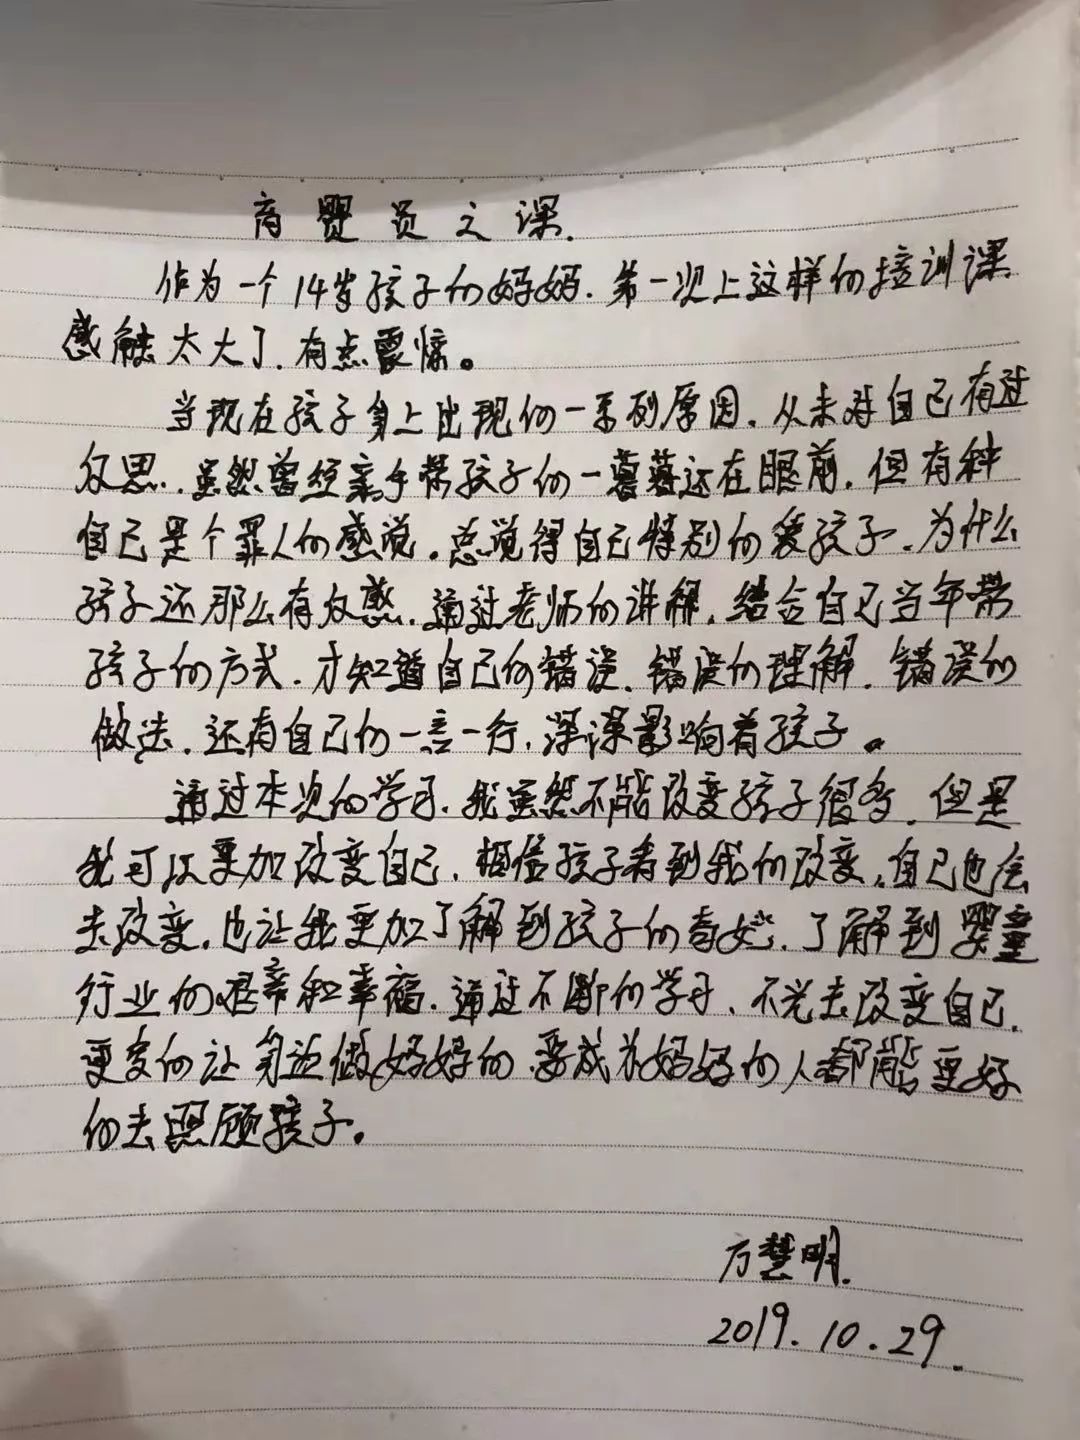 育婴员之课.
作为一个14岁孩子的妈妈.第一次上这样的培训课
感触太大了.有点震惊。
当现在孩子身上出现的一系列原因.从未对自己有过
反思.虽然曾经亲手带孩子的一幕幕还在眼前.但有种
自己是个罪人的感觉.总觉得自己特别的爱孩子.为什么
孩子还那么有反感.通过老师的讲解.结合自己当年带
孩子的方式.才知道自己的错误.错误的理解.错误的
做法.还有自己的一言一行,深深影响着孩子。
通过本次的学习.我虽然不能改变孩子很多.但是
我可以更加改变自己.相信孩子看到我的改变.自己也会
去改变.也让我更加了解到孩子的奇妙.了解到婴童
行业的艰辛和幸福.通过不断的学习、不光去改变自己.
更多的让身边做妈妈的.要成为妈妈的人都能更好
的去照顾孩子。
万慧明.
2019.10.29.